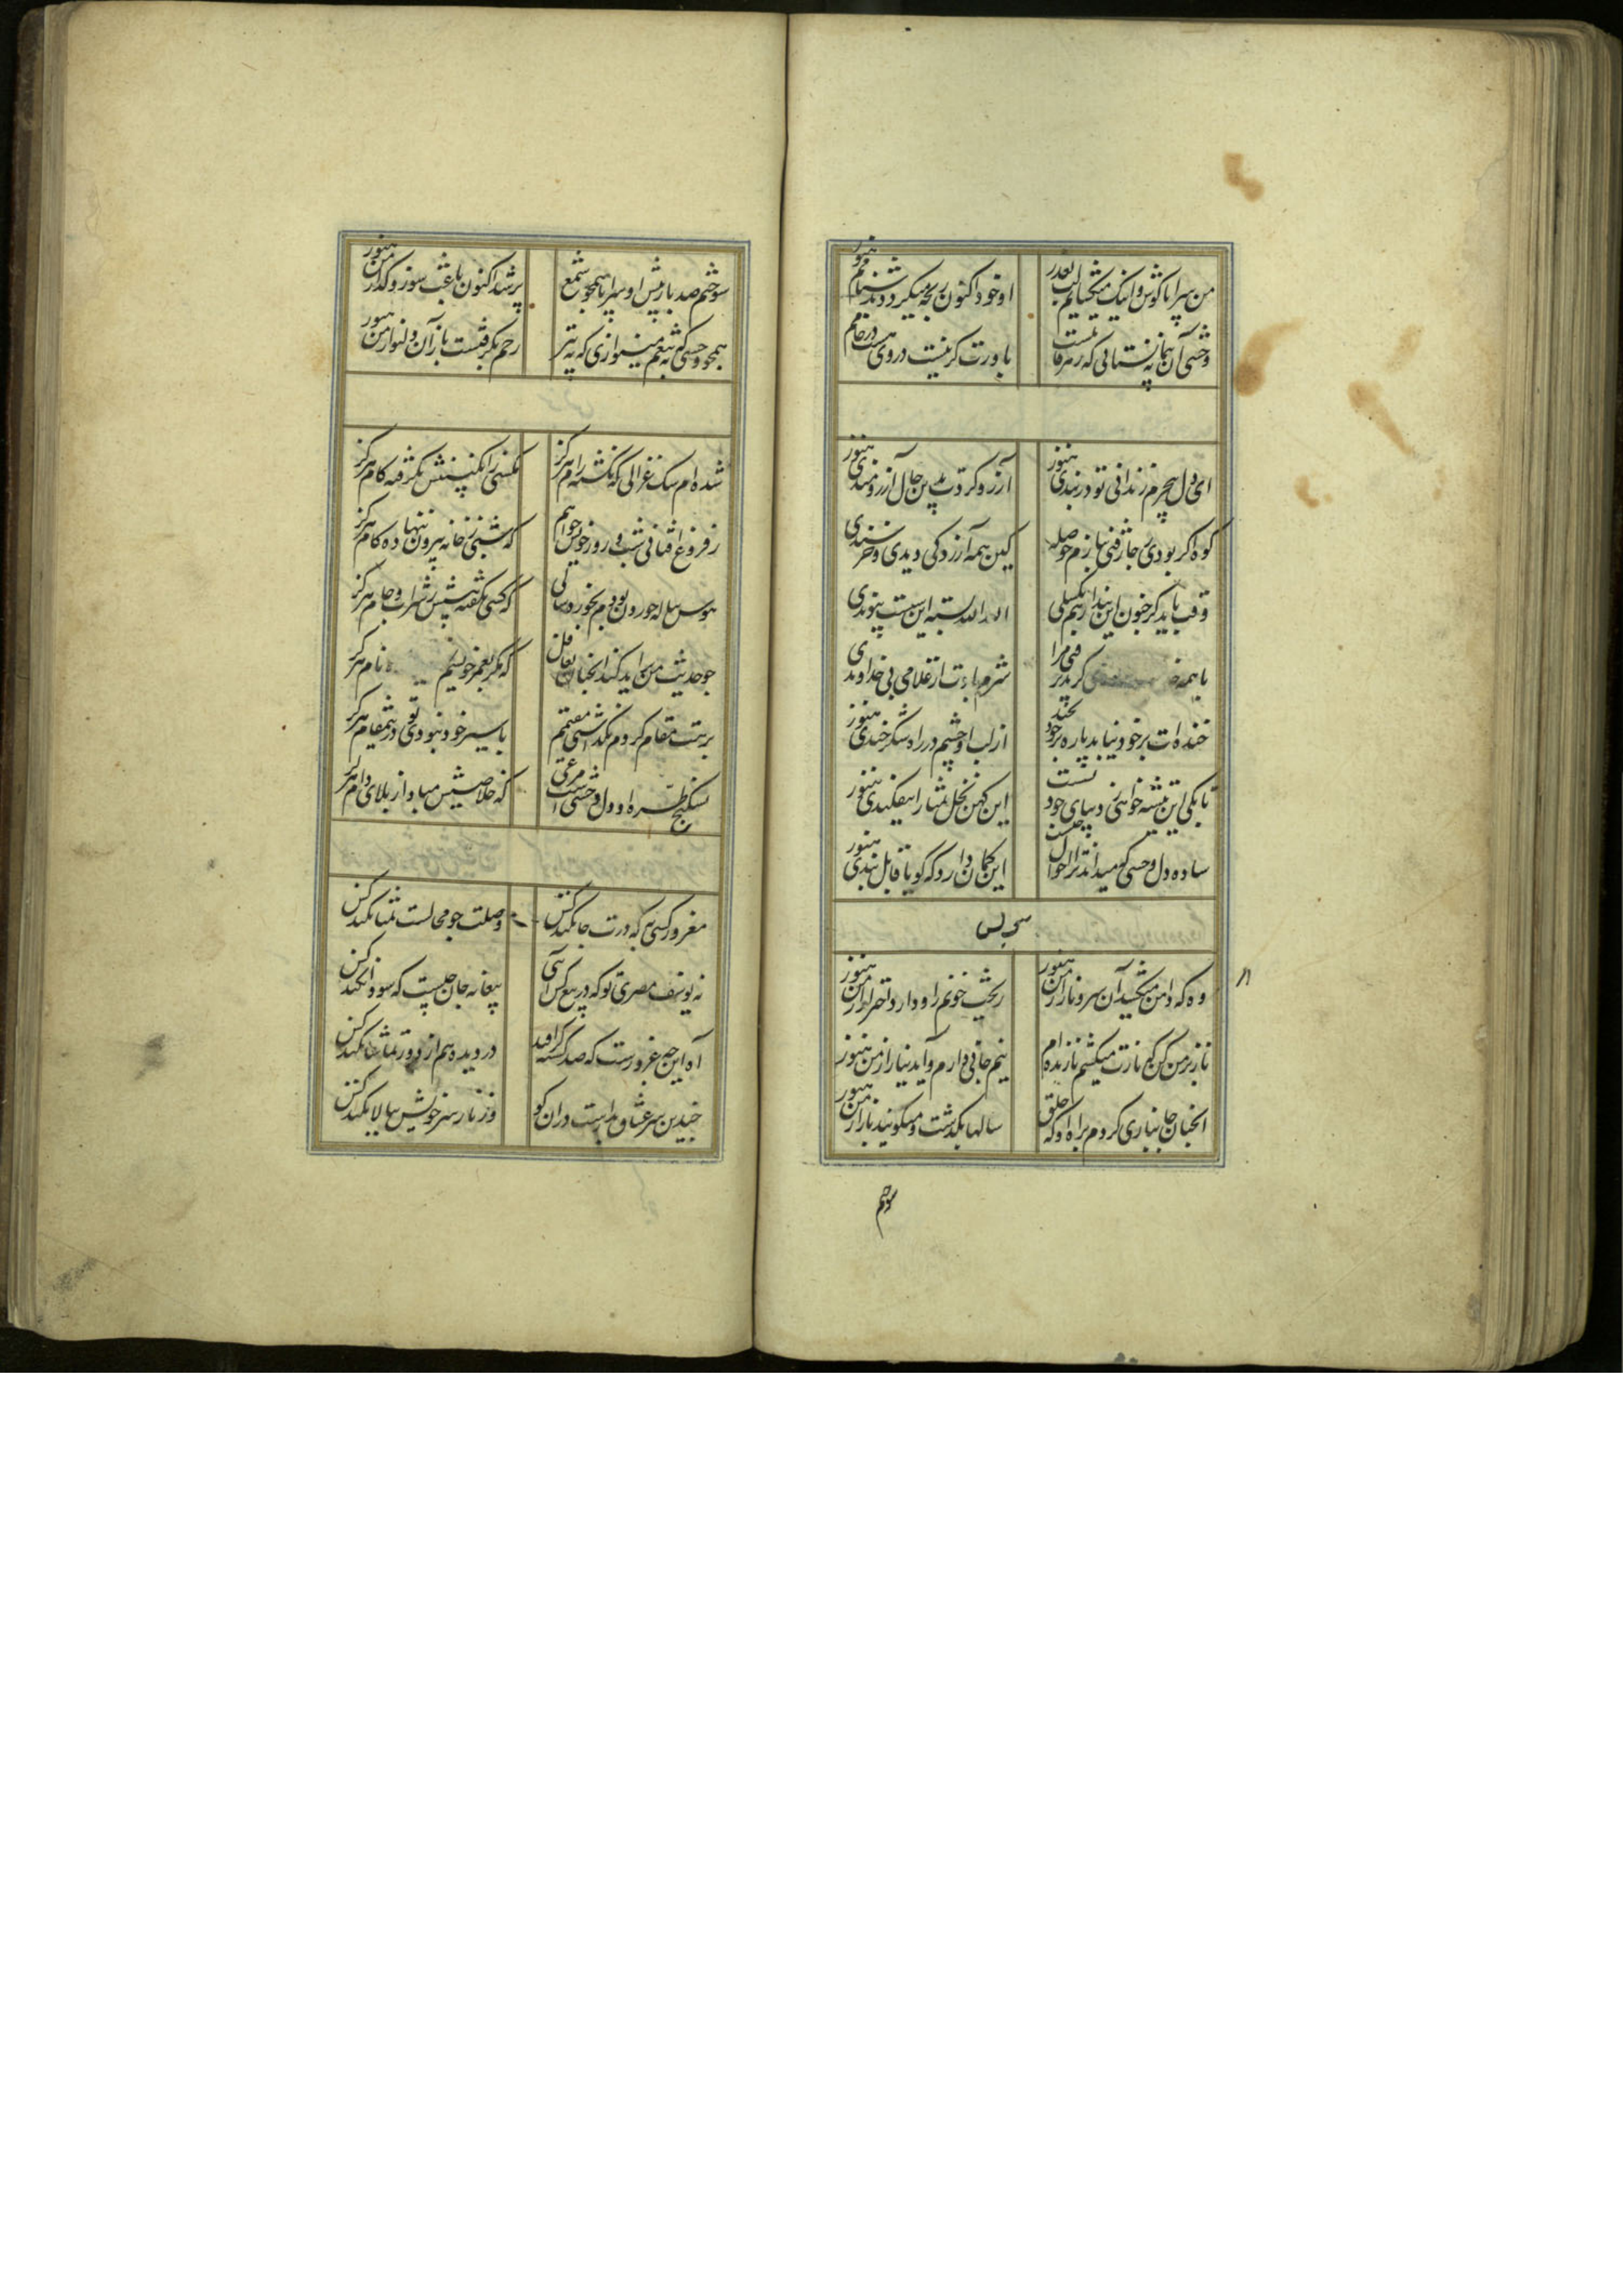 من سراپا گوش و اینک میگشایم لب بعذر
او خود اکنون رنجه میگردد ز دشنامم هنوز
وحشی آن پیمانه نستانی که زهر قاتلست
باورت گر نیست دردی هست در جامم هنوز
ای دل بیجرم زندانی تو در بندی هنوز
آرزو کردت بدین حال آرزومندی هنوز
کوه اگر بودی ز جا رفتی بنازم حوصله
کین همه آزردگی دیدی و خرسندی
وقت باید گر خون این بند از هم بگسلی
الله الله بسته این سست پیوندی
با همه
شرم بادت از غلامی بی خداوندی
خنده‌ات بر خود نیاید پاره بر خود بخند
از لب او چشم در راه شکر خندی هنوز
تا بکی این تیشه خواهی زد بپای خود
این کهن نخل تمنا را نیفکندی هنوز
ساده دل وحشی که میداند ترا احوال چیست
این گمان دارد که گویا قابل بندی هنوز
وه که دامن میکشد آن سرو ناز از من هنوز
ریخت خونم را و دارد احتراز از من هنوز
ناز بر من کن که نازت میکشم تا زنده ام
نیم جانی دارم و آید نیاز از من هنوز
آنچنان جانبازی کردم براه او که خلق
سالها بگذشت و میگویند باز از من هنوز
سوختم
سوختم صد بار پیش او سراپا همچو شمع
پرسد اکنون باعث سوز و گداز من هنوز
همچو وحشی گه به تیغم مینوازی گه به تیر
رحم نگرفتست باز آن دلنواز من هنوز
شده ام سگ غزالی که نگشته رام هرگز
مگسی ز انگبینش نگرفته کام هرگز
ز فروغ آفتابی شب و روز خویش خواهم
که شبی ز خانه بیرون ننهاده گام هرگز
هوس پیاله خوردن بودم بخورد سالی
که کسی نگفته پیشش ز شراب و جام هرگز
چو حدیث من بر آید کند آنچنان تغافل
که مگر بعمر خویشم نام هرگز
برهت مقام کردم نگذاشتی مقیمم
به اسیر خود نبودی تو در این مقام هرگز
بشکنج طره او دل وحشی است مرغی
که خلاصیش مبادا ز بلای دام هرگز
مغرور کسی به که درت جا نکند کس
وصلت چو محالست تمنا نکند کس
نه یوسف مصری تو که در بیع کس آیی
بیعانه جان چیست که سودا نکند کس
آه این چه غرورست که صد کشته گر افتد
در دیده هم از دور تماشا نکند کس
چیدن سر عشاق مداست در آن کو
وز ناز سر خویش ببالا نکند کس